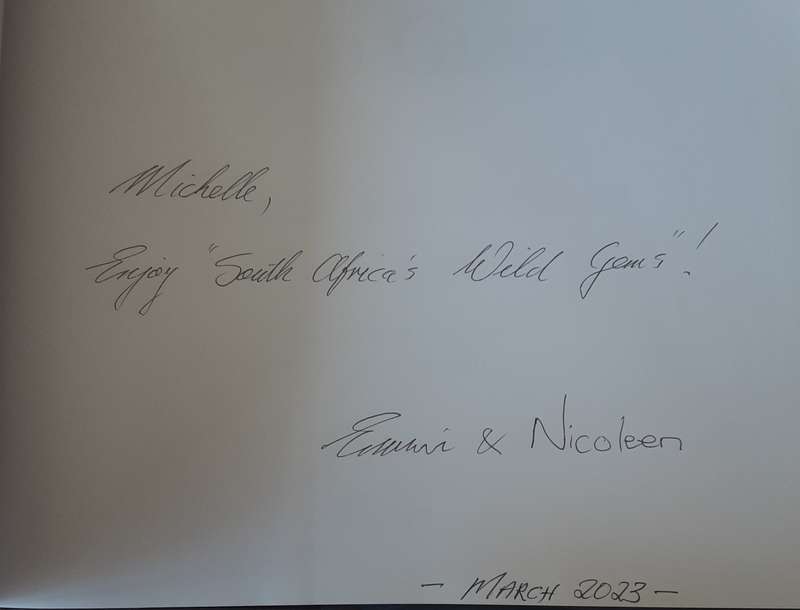 Michelle,
Enjoy "South Africa's Wild Gems"!
Emmi & Nicoleen
- MARCH 2023 -